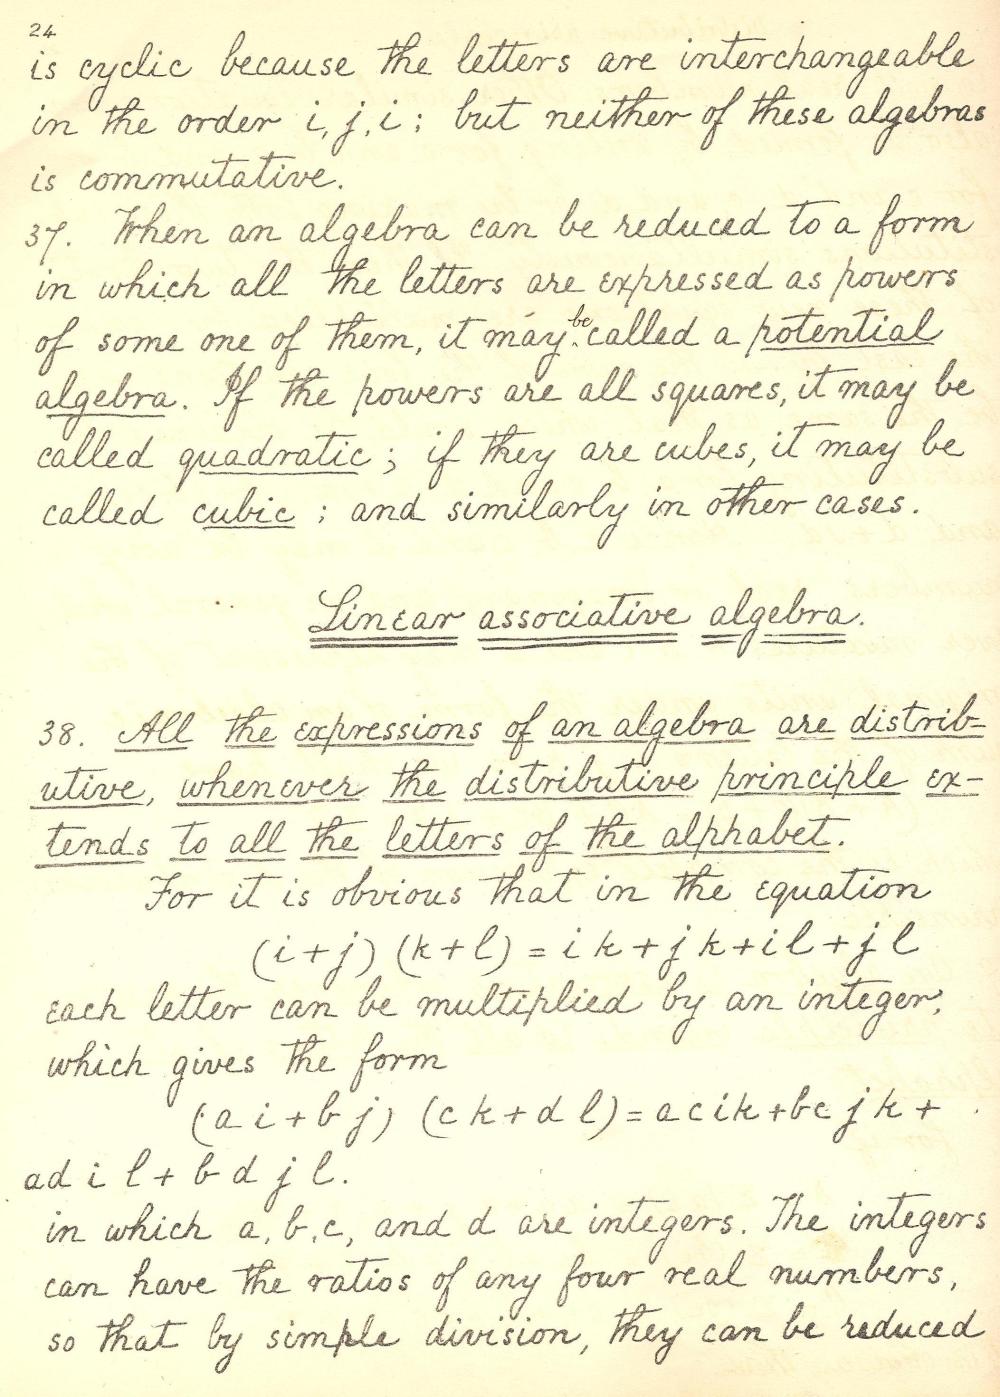 24
is cyclic because the letters are interchangeable
in the order i, j, i; but neither of these algebras
is commutative.
37. When an algebra can be reduced to a form
in which all the letters are expressed as powers
of some one of them, it may be called a potential
algebra. If the powers are all squares, it may be
called quadratic; if they are cubes, it may be
called cubic; and similarly in other cases.
Linear associative algebra.
38. All the expressions of an algebra are distrib-
utive, whenever the distributive principle ex-
tends to all the letters of the alphabet.
For it is obvious that in the equation
(i+j) (k+l) = ik+jk+il+jl
each letter can be multiplied by an integer,
which gives the form
(ai+bj) (ck+dl)=acik+bcjk+
adil+bdjl.
in which a, b, c, and d are integers. The integers
can have the ratios of any four real numbers,
so that by simple division, they can be reduced